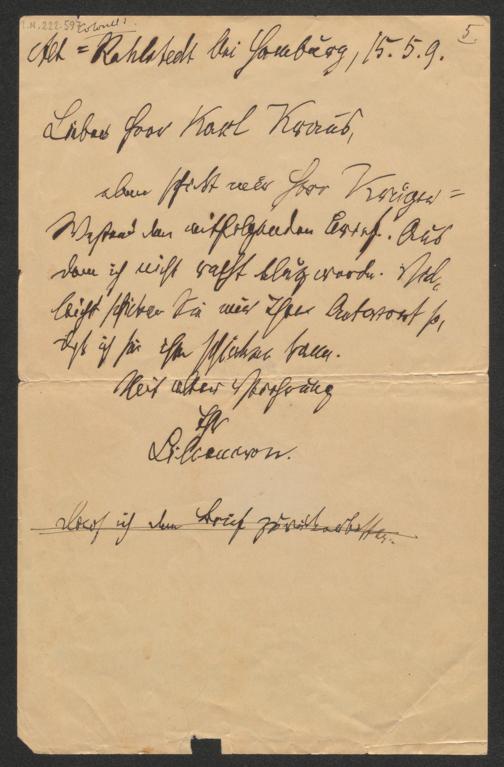 I.N. 222.597
5.
Alt=Rahlstedt bei Hamburg, 15.5.9.
Lieber Herr Karl Kraus,
eben schickt mir Herr Krüger=
Westend den mitfolgenden Brief. Aus
dem ich nicht recht klug werde. Viel-
leicht schicken Sie mir Ihre Antwort so,
daß ich sie ihm schicken kann.
Mit alter Verehrung
Ihr
Liliencron.
Darf ich den Brief zurückerbitten.